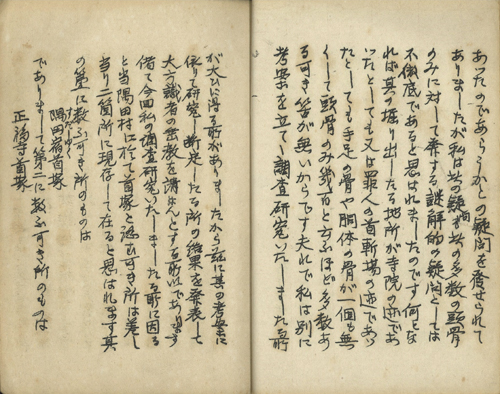 あったのであらうかとの疑問を発せられて
ありましたが私は此の疑問が此の多数の頭骨
のみに対して発する謎解的の疑問としては
不徹底であると思はれましたのです何とな
れば其の堀り出したる地所が寺院の迹であ
いたとしても又は罪人の首斬場の迹であっ
たとしても手足の骨や胴体の骨が一個も無
くして頭骨のみ幾百と云ふほど多数あ
る可き筈が無いからです夫れで私は別に
考案を立てゝ調査研究いたしました所
が大ひに得る所がありましたから茲に其の考案に
依りて研究し断定したる所の結果を発表して
大方識者の垂教を請はんとする所以であります
偖て今回私の調査研究いたしましたる所に因る
と当隅田村に於て首塚と認む可き所は差し
当り二箇所に現存して在ると思はれます其
の第一に数ふ可き所のものは
隅田宿首塚
でありまして第二に数ふ可き所のものは
正福寺首塚